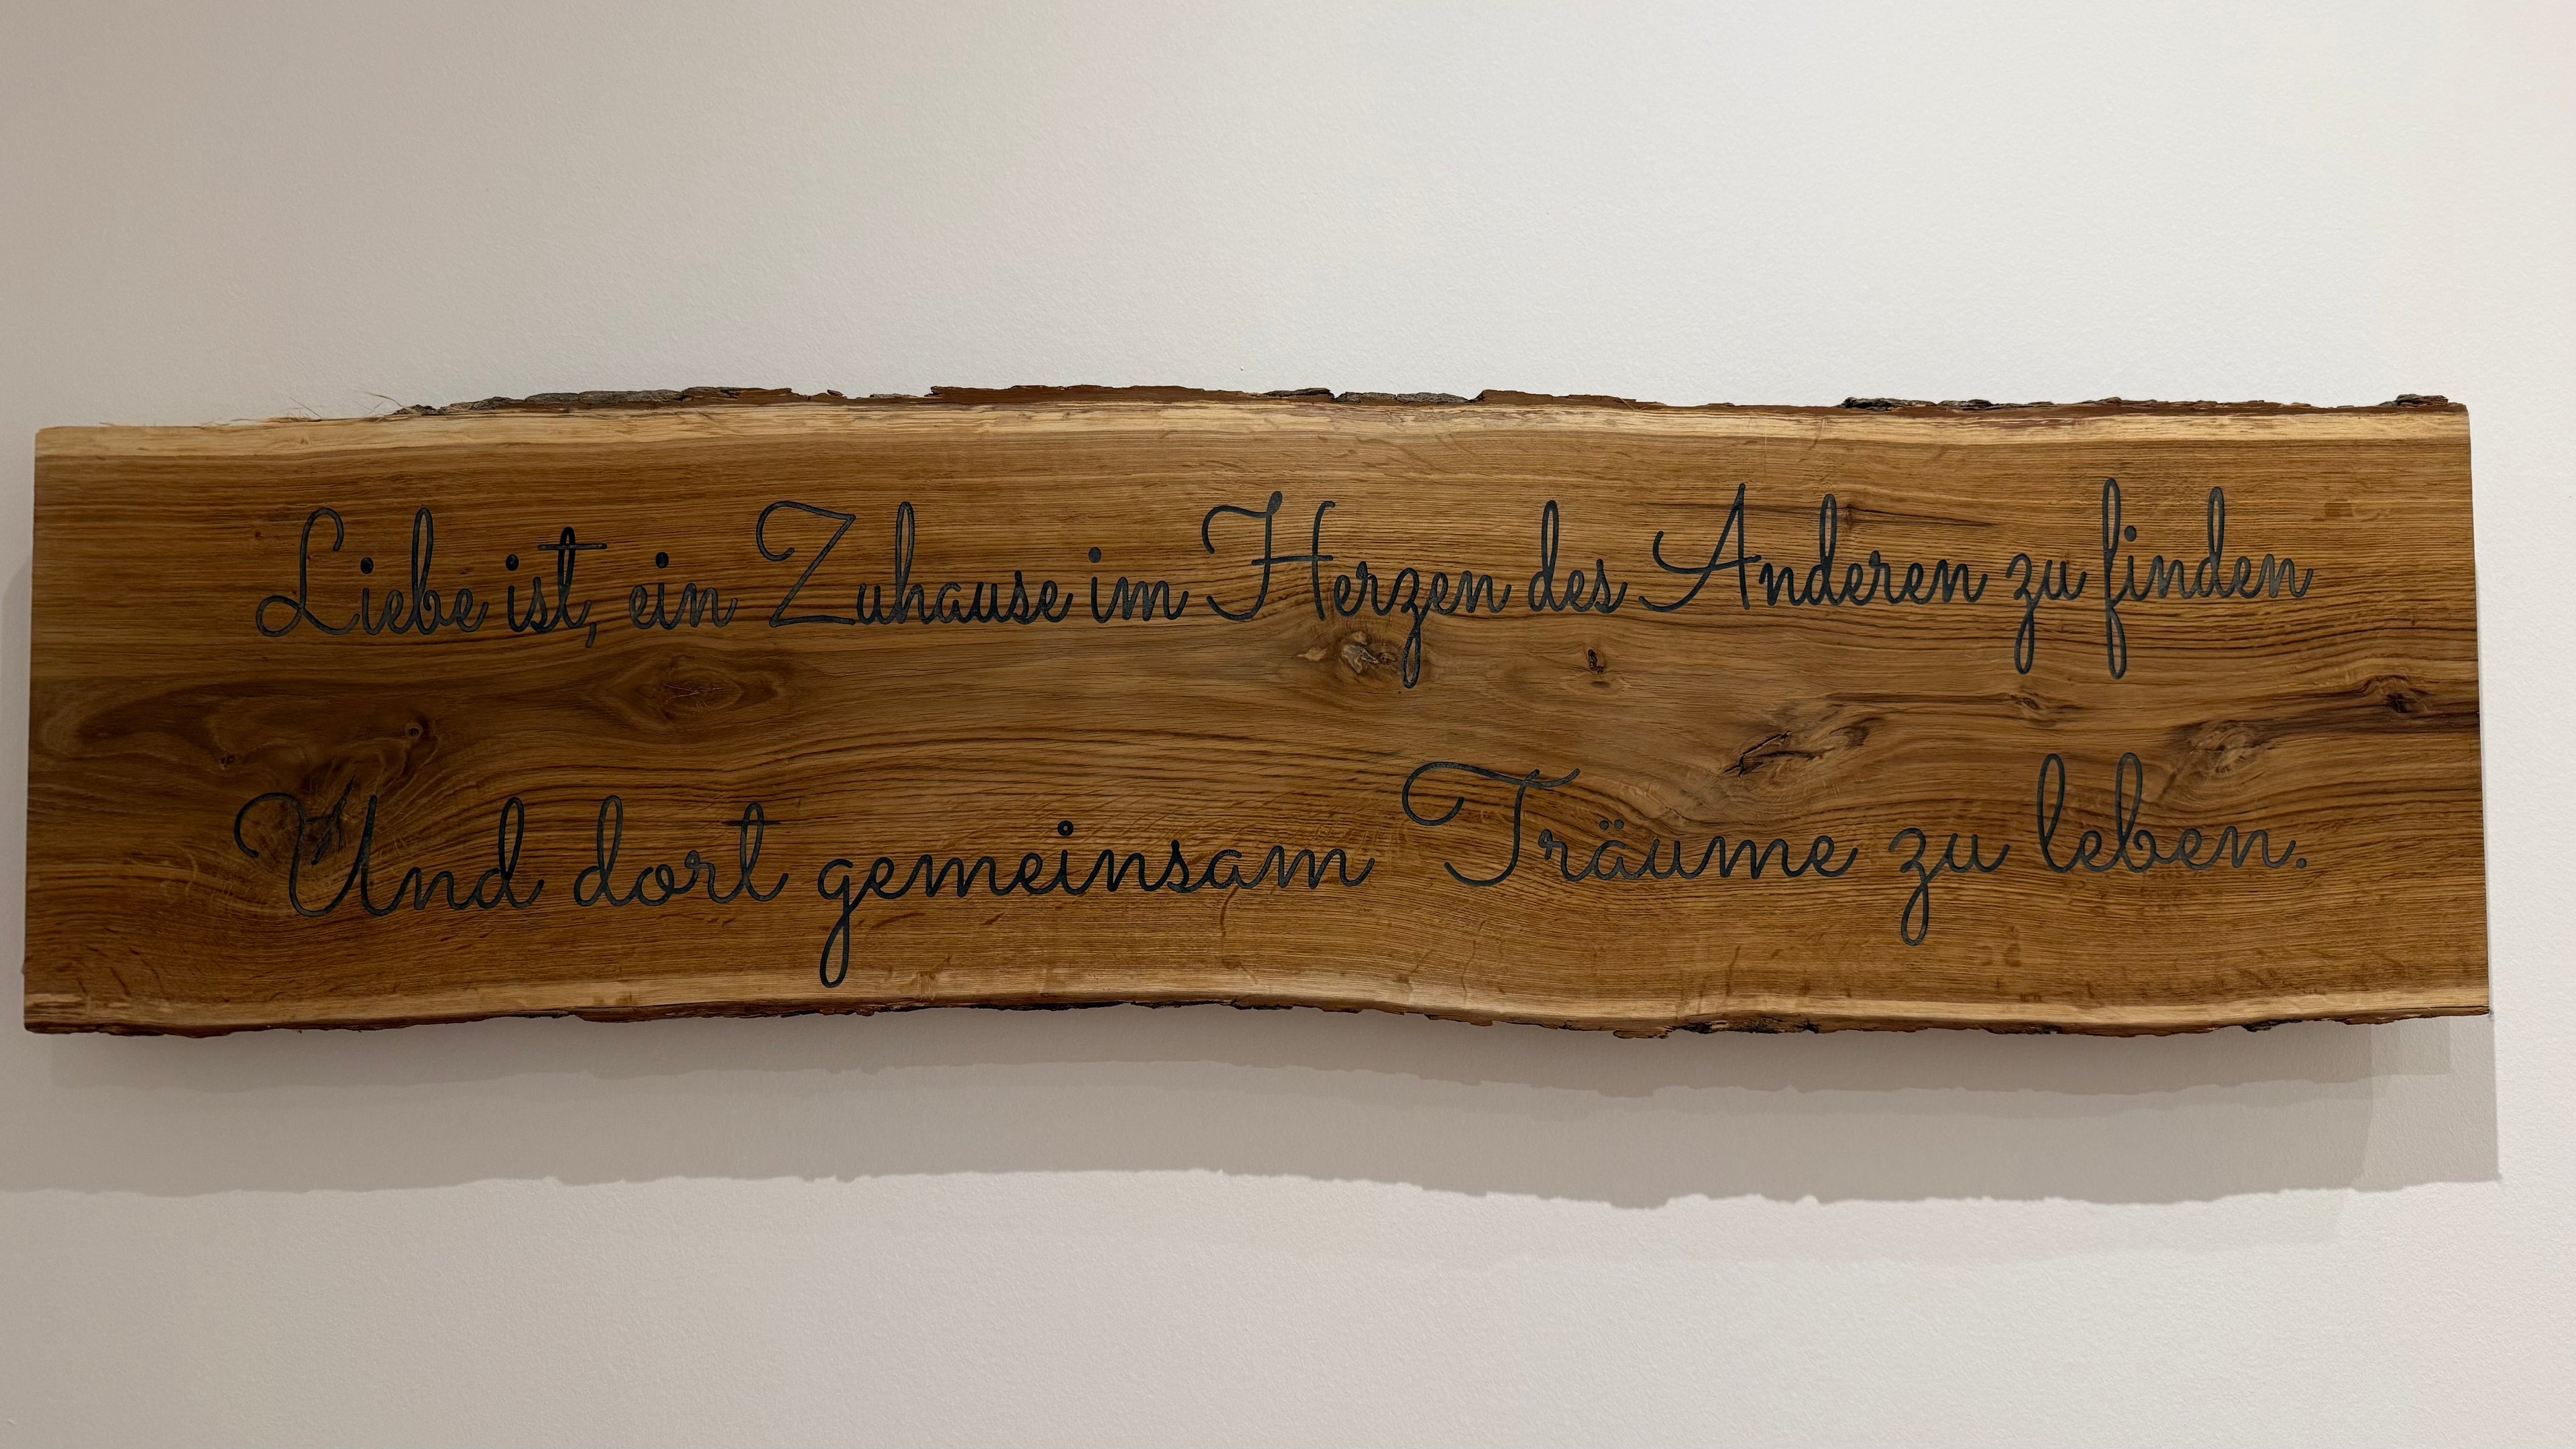 Liebe ist, ein Zuhause im Herzen des Anderen zu finden
Und dort gemeinsam Träume zu leben.